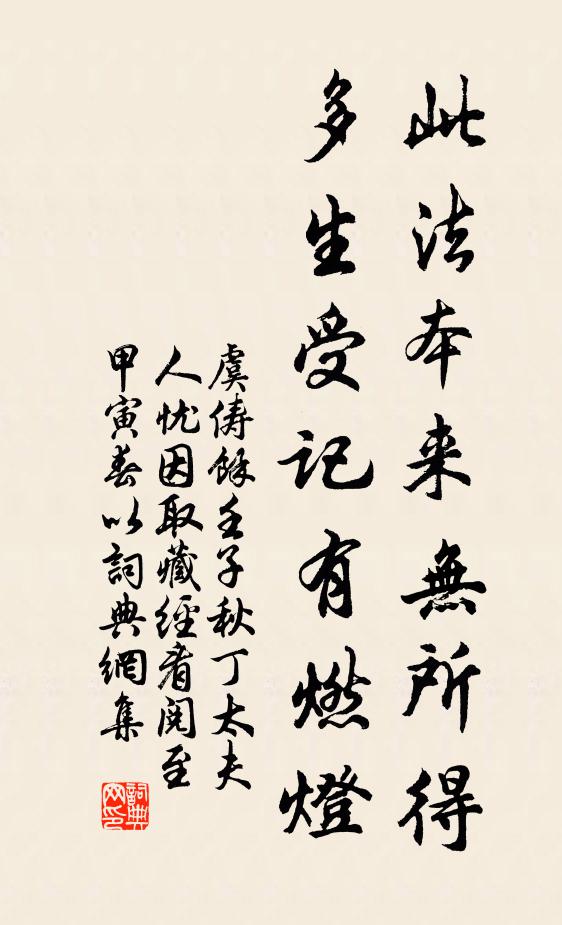 此法本来無所得
多生受记有燃燈
虞俦餘壬子秋丁太夫
人忧因取藏經看阅至
甲寅春以詞典網集
詞典网印